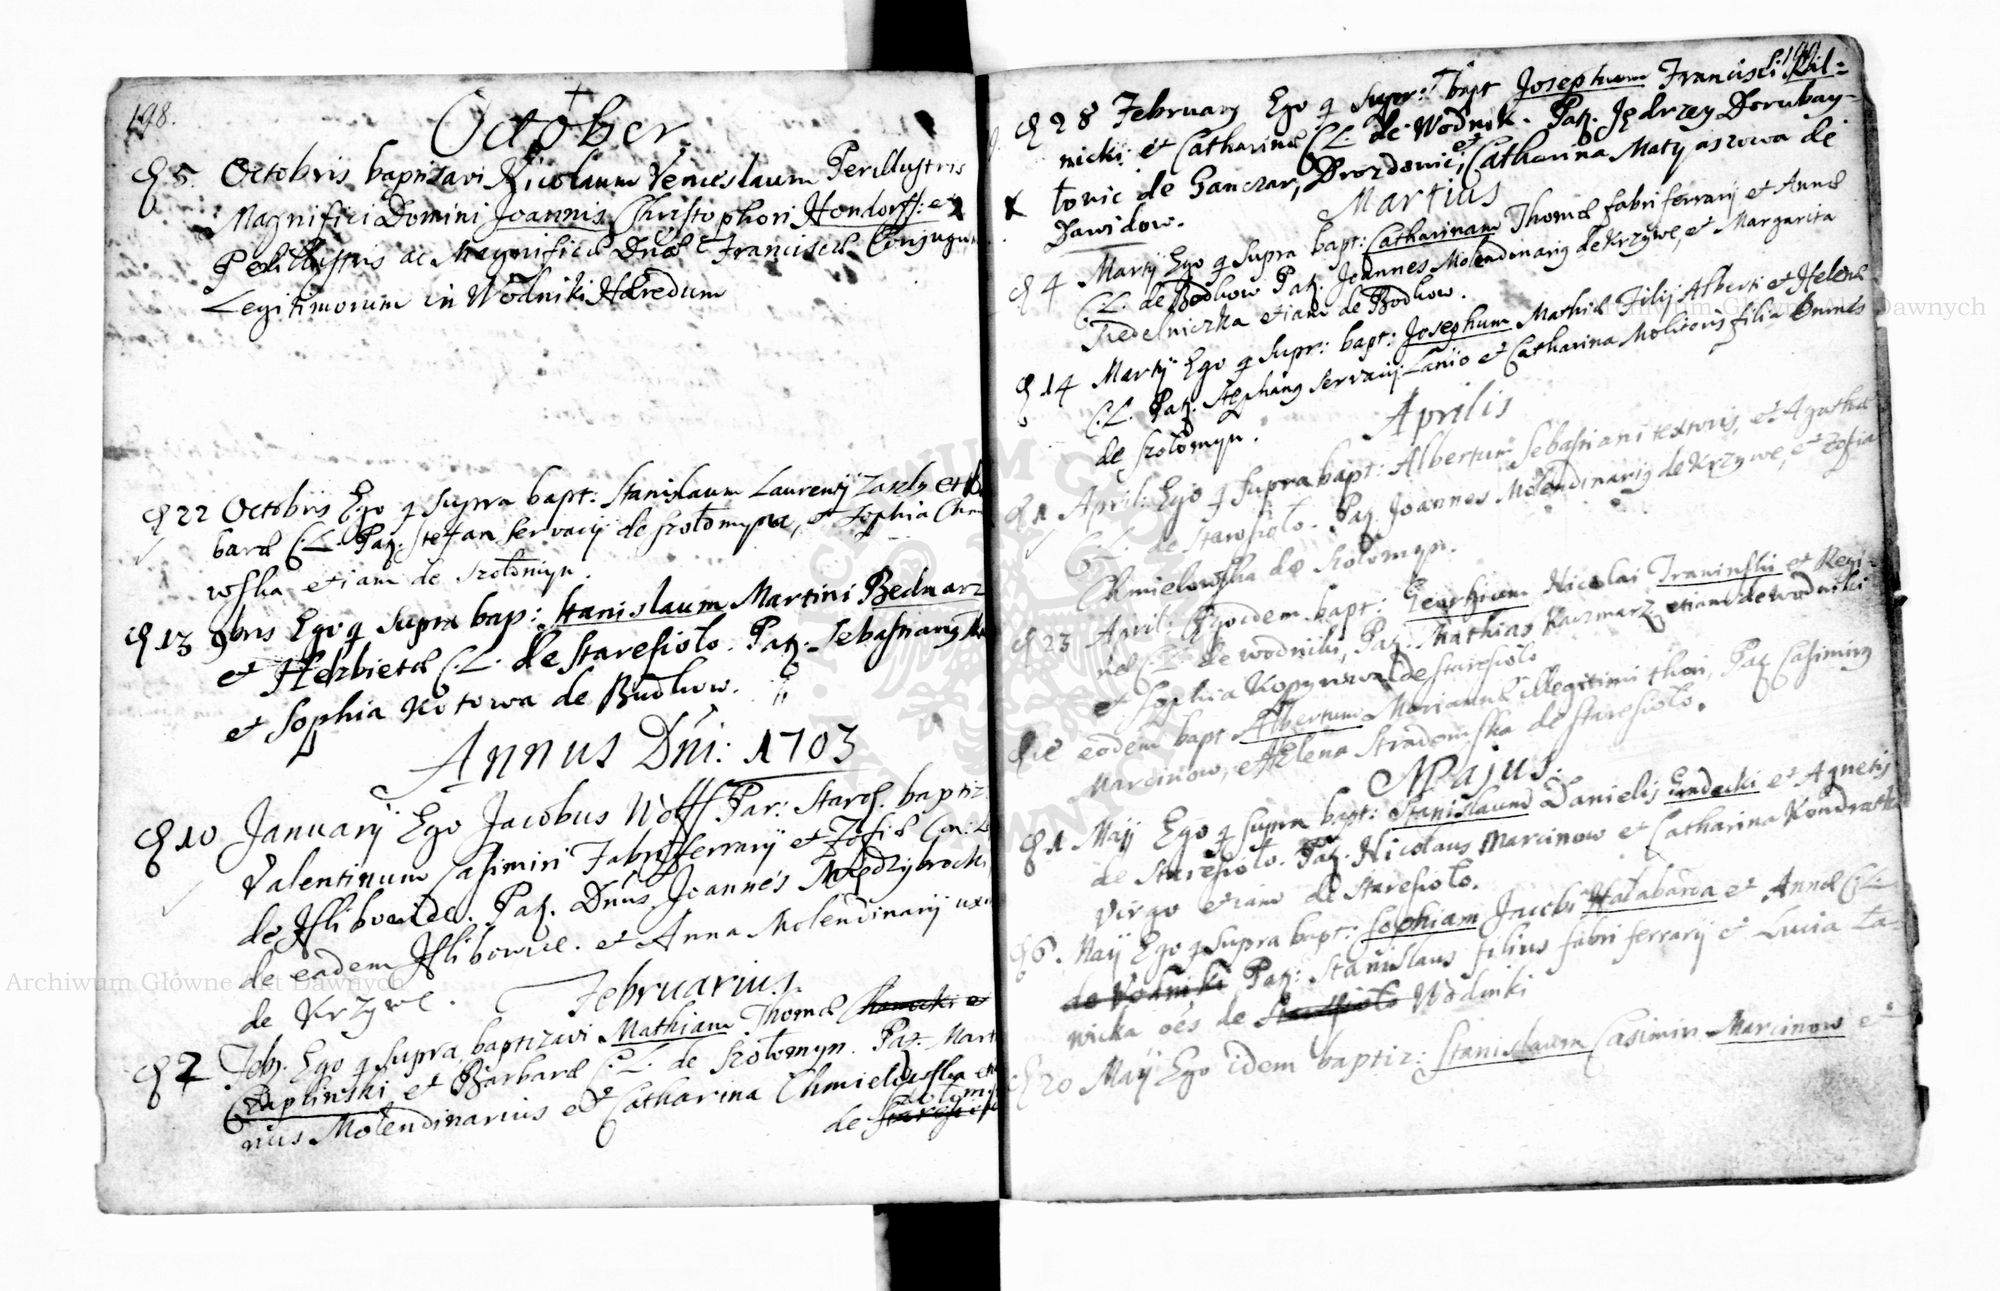 198.
October
D 5. Octobris baptizavi Nicolaum Venceslaum Perillustris
Magnifici Domini Joannis Christophori Hondorff: et
Perillustris ac Magnificæ Dnæ Franciscæ Conjugum
Legitimorum in Wodniki Hæredum
D 22 Octobris Ego q supra bapt: Stanislaum Laurentij et Bar
baræ C.L. Pat. Stefan Servacij de Szołomyia, et Zophia Chmie
wska etiam de Szołomyn.
D 13 9bris Ego q supra bap: Stanislaum Martini Bednarz
et Helzbietæ C.L. de Staresioło. Pat. Sebastianus
et Sophia Kotowa de Budkow.
Annus Dni: 1703
D 10 Januarij Ego Jacobus Wolff Par: Stares. baptiz
Valentinum Casimiri Fabri ferrarij et Zofiæ Con: L
de Hlibowice. Pat. Dnus Joannes Międzybrocki
de eadem Hlibowice. et Anna Molendinarij uxor
de Krzywe.
Februarius.
D 2 Feb. Ego q supra baptizavi Mathiam Thomæ
Czaplinski et Barbaræ C.L. de Szołomyn. Pat. Mart
nus Molendinarius et Catharina Chmielowska
de
199
D 28 February Ego q supr: bapt Josephum Francisci Kil=
nicki et Catharinæ C.L. de Wodnik. Pat. Jędrzey Dorubay
towic de Ganczar, Drozdowic, et Catharina Matyaszowa de
Dawidow.
Martius
D 4 Martij Ego q supra bapt: Catharinam Thomæ fabri ferrarij et Annæ
C.L. de Bodkow Pat. Joannes Molendinarig de Krzywe, et Margarita
Tiedelniczka etiam de Bodkow.
D 14 Martij Ego q supr: bapt: Josephum Mathiæ Filij Alberti et Helenæ
C.L. Pat. Stephang Servacij Lanio et Catharina Molitoris filia omnes
de Szołomyn.
Aprilis
D 1 April: Ego q supra bapt: Albertum Sebastiani textoris, et Agathæ
C.L. de Staresioło. Pat. Joannes Molendinarig de Krzywe, et Zofia
Chmielowska de Szołomyn.
D 23 April: Ego idem bapt: Georgium Nicolai Trawinski et Regi=
næ C.L. de Wodniki, Pat. Mathias Kaczmarz etiam de Wodniki
et Sophia de Staresioło
Die eodem bapt Albertum Mariannæ illegitimi thori, Pat Casimirg
Marcinow, et Helena Stradomska de Staresioło.
Majus.
D 1 Maij Ego q supra bapt: Stanislaum Danielis et Agnetis
de Staresioło. Pat. Nicolaus Marcinow et Catharina Kondratka
Virgo etiam de Staresioło.
D 6. Maij Ego q supra bapt: Sophiam Jacobi Halabarda et Annæ C.L.
de Wodniki Pat: Stanislaus filius fabri ferrarij et Lucia La=
wicka oes de Staresioło Wodniki
D 20 Maij Ego idem baptiz: Stanislaum Casimiri Marcinow et
Archiwum Główne Akt Dawnych
Archiwum Główne Akt Dawnych